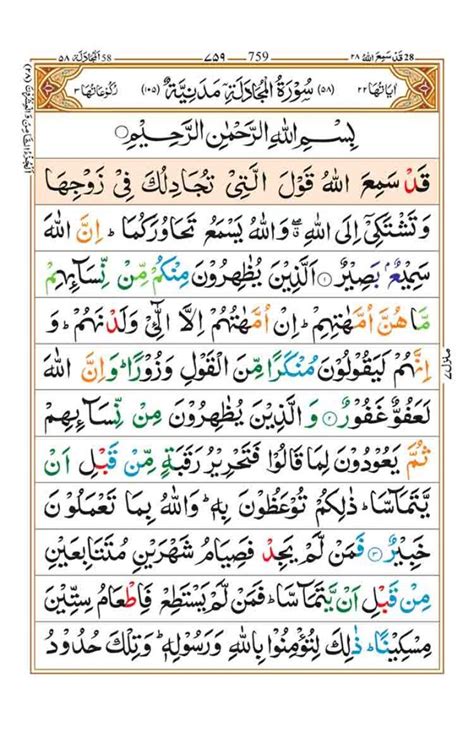 ٥٨ المجادلة 58 759 ٧٥٩ 28 قد سمع الله ٢٨
اٰيَاتُهَا ٢٢ (٥٨) سُوْرَةُ الْمُجَادَلَةِ مَدَنِيَّةٌ (١٠٥) رُكُوْعَاتُهَا ٣
بِسْمِ اللهِ الرَّحْمٰنِ الرَّحِيْمِ
قَدْ سَمِعَ اللهُ قَوْلَ الَّتِيْ تُجَادِلُكَ فِيْ زَوْجِهَا
وَتَشْتَكِيْٓ اِلَى اللهِ ۖ وَاللهُ يَسْمَعُ تَحَاوُرَكُمَا ؕ اِنَّ اللهَ
سَمِيْعٌۢ بَصِيْرٌ ۝١ اَلَّذِيْنَ يُظٰهِرُوْنَ مِنْكُمْ مِّنْ نِّسَآئِهِمْ
مَّا هُنَّ اُمَّهٰتِهِمْ ؕ اِنْ اُمَّهٰتُهُمْ اِلَّا الّٰٓـِٔيْ وَلَدْنَهُمْ ؕ وَ
اِنَّهُمْ لَيَقُوْلُوْنَ مُنْكَرًا مِّنَ الْقَوْلِ وَزُوْرًا ؕ وَاِنَّ اللهَ
لَعَفُوٌّ غَفُوْرٌ ۝٢ وَالَّذِيْنَ يُظٰهِرُوْنَ مِنْ نِّسَآئِهِمْ
ثُمَّ يَعُوْدُوْنَ لِمَا قَالُوْا فَتَحْرِيْرُ رَقَبَةٍ مِّنْ قَبْلِ اَنْ
يَّتَمَآسَّا ؕ ذٰلِكُمْ تُوْعَظُوْنَ بِهٖ ؕ وَاللهُ بِمَا تَعْمَلُوْنَ
خَبِيْرٌ ۝٣ فَمَنْ لَّمْ يَجِدْ فَصِيَامُ شَهْرَيْنِ مُتَتَابِعَيْنِ
مِنْ قَبْلِ اَنْ يَّتَمَآسَّا ۚ فَمَنْ لَّمْ يَسْتَطِعْ فَاِطْعَامُ سِتِّيْنَ
مِسْكِيْنًا ؕ ذٰلِكَ لِتُؤْمِنُوْا بِاللهِ وَرَسُوْلِهٖ ؕ وَتِلْكَ حُدُوْدُ
منزل ٧